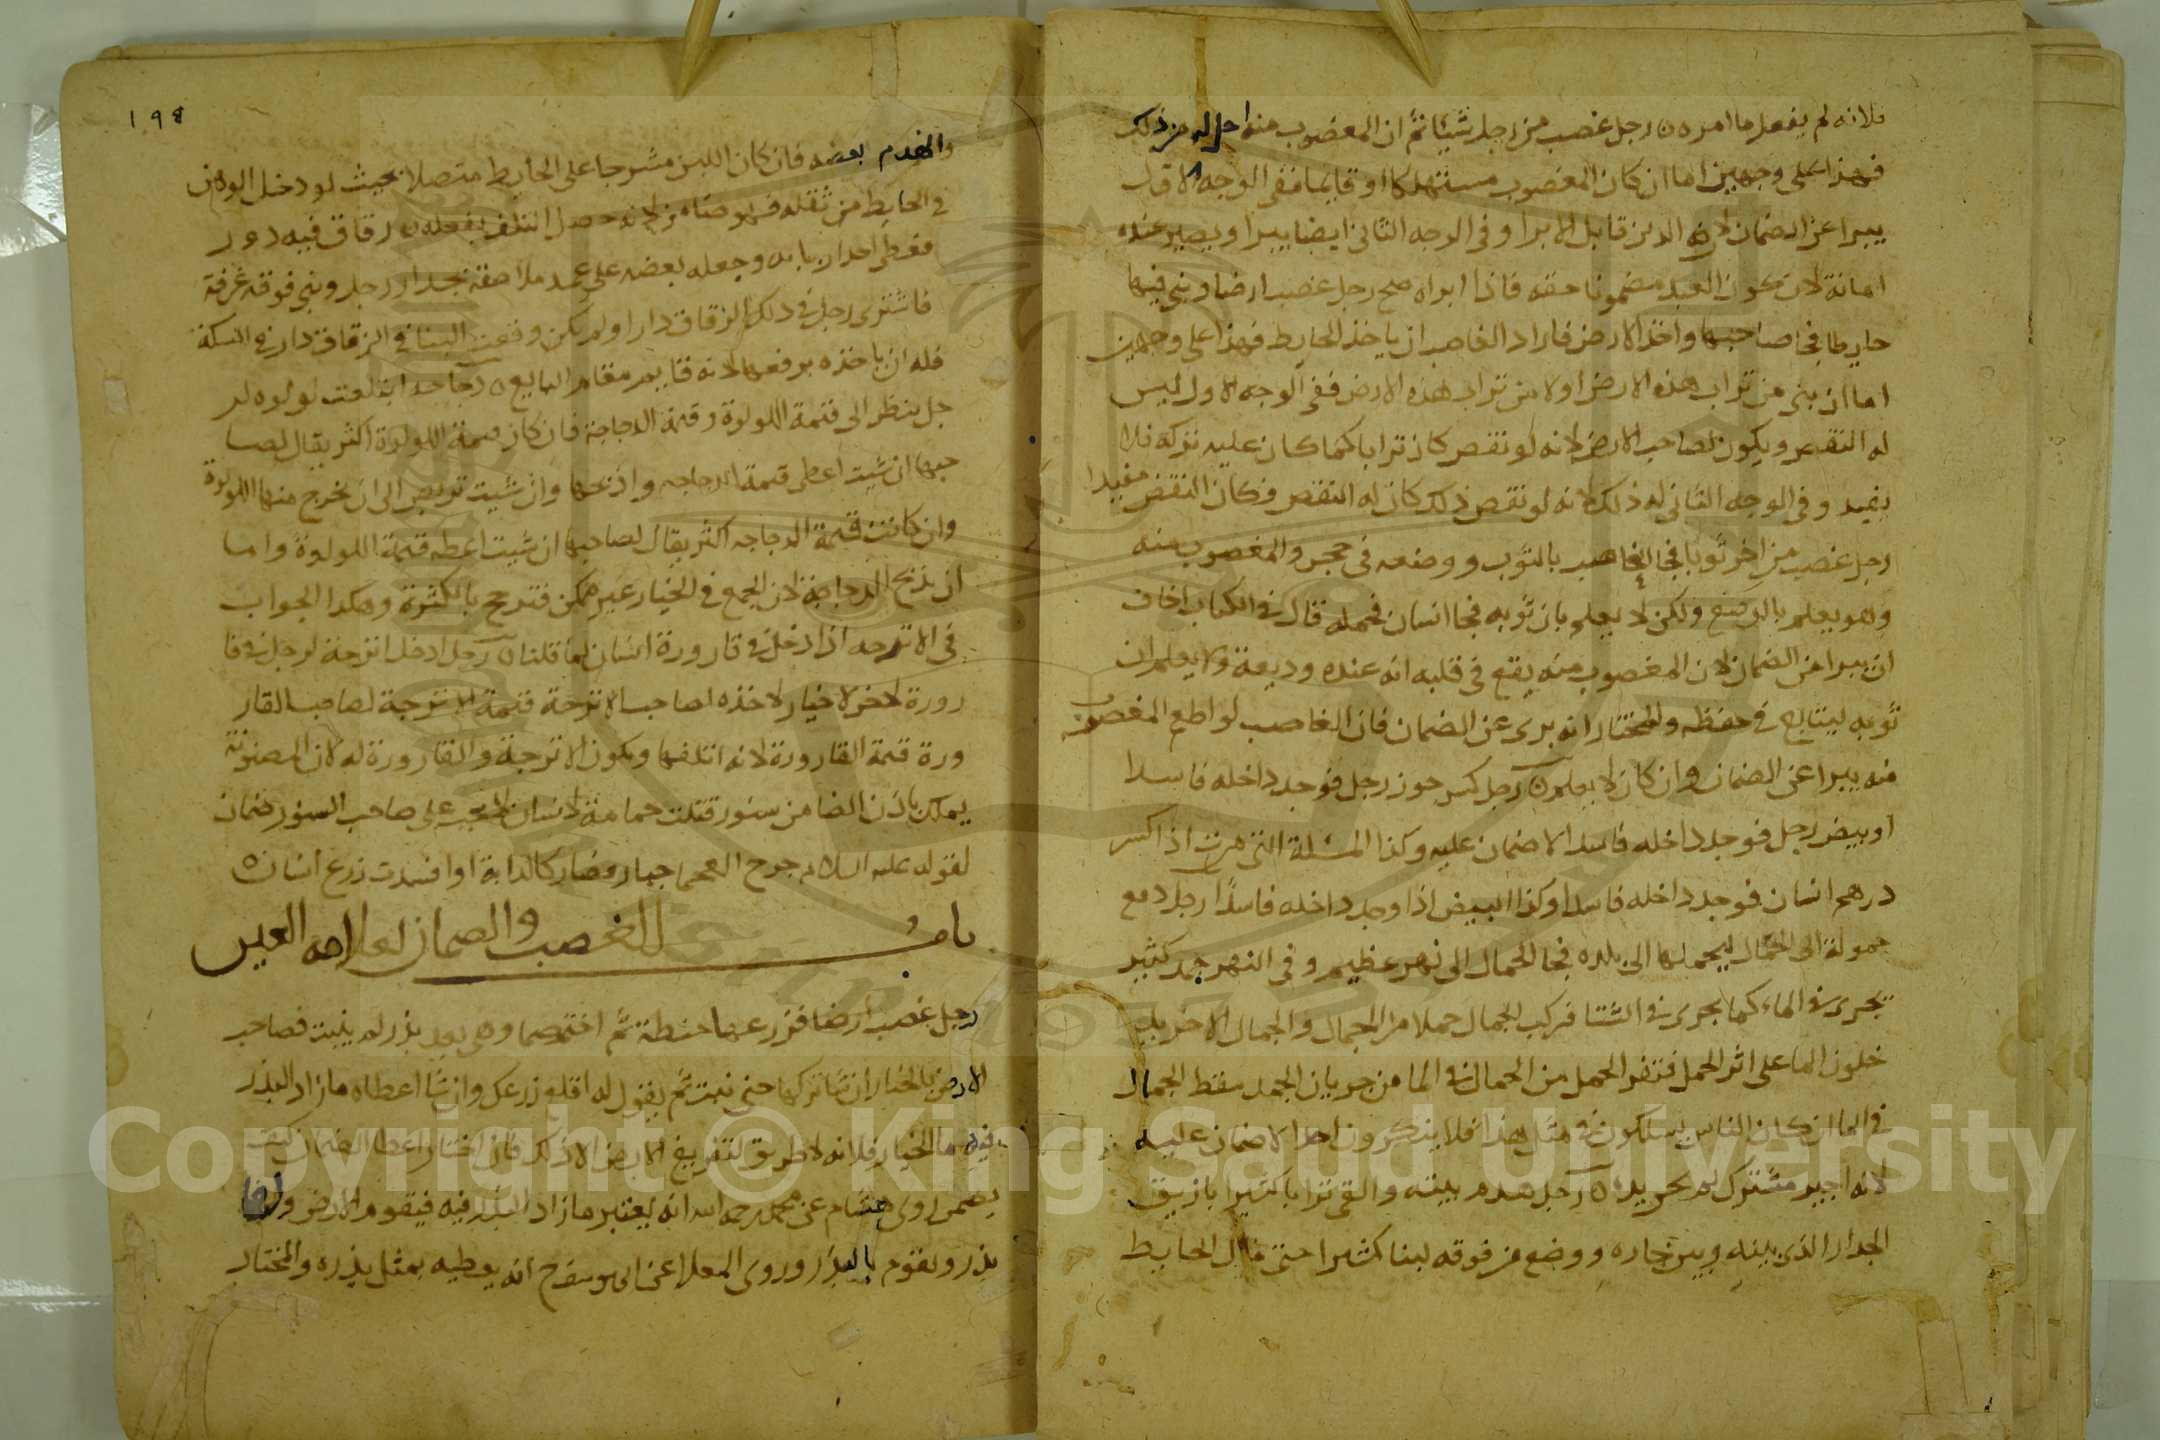 فلانه لم يفعل ما امره رجل غصب من رجل شيئا ثم ان المغصوب منه احل له من ذلك
فهذا على وجهين اما ان كان المغصوب مستهلكا او قايما ففي الوجه الاول
يبرا عن الضمان لان الدين قابل للابرا وفي الوجه الثاني ايضا يبرا ويصير عنده
امانة لان كون العبد مضمونا حقه فاذا ابراه صح رجل غصب ارضا وبنى فيها
حايطا فجا صاحبها واخذ الارض فاراد الغاصب ان ياخذ الحايط فهذا على وجهين
اما ان بنى من تراب هذه الارض اولا من تراب هذه الارض ففي الوجه الاول ليس
له النقض ويكون لصاحب الارض لانه لو نقض كان ترابا كما كان عليه تركه فلا
يفيد وفي الوجه الثاني له ذلك لانه لو نقض ذلك كان له النقض وكان النقض مفيدا
رجل غصب من اخر ثوبا فجا الغاصب بالثوب ووضعه في حجر والمغصوب منه
وهو يعلم بالوضع ولكن لا يعلم بان ثوبه فجا انسان فحمله قال في الكتاب اخاف
ان يبرا من الضمان لان المغصوب منه يقع في قلبه انه عنده وديعة ولا يعلم ان
ثوبه ليتابع في حفظه والمختار انه برى عن الضمان فان الغاصب لو اطعم المغصوب
منه يبرا عن الضمان وان كان لا يعلم رجل كسر جوز رجل فوجد داخله فاسدا
او بيض رجل فوجد داخله فاسدا لا ضمان عليه وكذا المسئلة التي مرت اذا كسر
درهم انسان فوجد داخله فاسدا وكذا البيض اذا وجد داخله فاسدا رجل دفع
حمولة الى الجمال ليحملها الى بلده فجا الجمال الى نهر عظيم وفي النهر جمد كثير
يجرى في الماء كما يجرى في الشتا فركب الجمال جملا من الجمال والجمال الاخر يد
خلون الما على اثر الجمل فتفر الجمل من الجمال في الما من جريان الجمد سقط الجمال
في الما ان كان الناس يسلكون في مثل هذا فلا ينكرون احدا لا ضمان عليه
لانه اجير مشترك رجل هدم بيته والقى ترابا كثيرا بازيق
الجدار الذي بينه وبين جاره ووضع من فوقه لبنا كثيرا حتى مال الحايط
١٩٤
وانهدم بعضه فان كان اللبن مشرجا على الحايط متصلا بحيث لو دخل الوهن
في الحايط من ثقله فهو ضامن لانه حصل التلف بفعله زقاق فيه دور
فغطى احدار بابه وجعله بعضه على عمد ملاصقة بجدار رجل وبنى فوقه غرفة
فاشترى رجل في ذلك الزقاق دارا ولم يكن وقعت البنا في الزقاق دار في السكة
فله ان ياخذه برفعها لانه قايم مقام البايع دجاجة ابتلعت لولوه لر
جل ينظر الى قيمة اللولوة وقيمة الدجاجة فان كان قيمة اللولوة اكثر يقال لصا
حبها ان شيت اعطى قيمة الدجاجه واذبحها وان شيت تربص الى ان تخرج منها اللولوة
وان كانت قيمة الدجاجه اكثر يقال لصاحبها ان شيت اعطه قيمة اللولوة واما
ان يذبح الدجاجة لان الجمع في الخيار غير ممكن فترجح بالكثرة وهكذا الجواب
في الاترجه اذا دخل في قارورة انسان لما قلنا رجل ادخل اترجة لرجل في قا
رورة لاخر لا خيار لاخذه لصاحب الاترجة قيمة الاترجة لصاحب القار
ورة قيمة القارورة لانه اتلفها ويكون الاترجة والقارورة له لان المضمونة
يملك باذن الضامن سنور قتلت حمامة لانسان لا يجب على صاحب السنور ضمان
لقوله عليه السلام جرح العجما جبار وصار كالدابة اذا افسدت زرع انسان
باب الغصب والضمان لعلامه العين
رجل غصب ارضا فزرعها حنطة ثم اختصما وهي بعد بذر لم ينبت فصاحب
الارض بالخيار ان شا تركها حتى نبت ثم يقول له اقلع زرعك وان شا اعطاه ما زاد البذر
فيه ما الخيار فلانه لا طريق لتفريغ الارض الا ذلك فان اختار اعطا الضمان كيف
يضمن روى هشام عن محمد رحمه الله انه يعتبر ما زاد البذر فيه فيقوم الارض ولا
بذر ويقوم بالبذر وروى المعلا عن ابي يوسف رح انه يعطيه بمثل بذره والمختار
Copyright © King Saud University